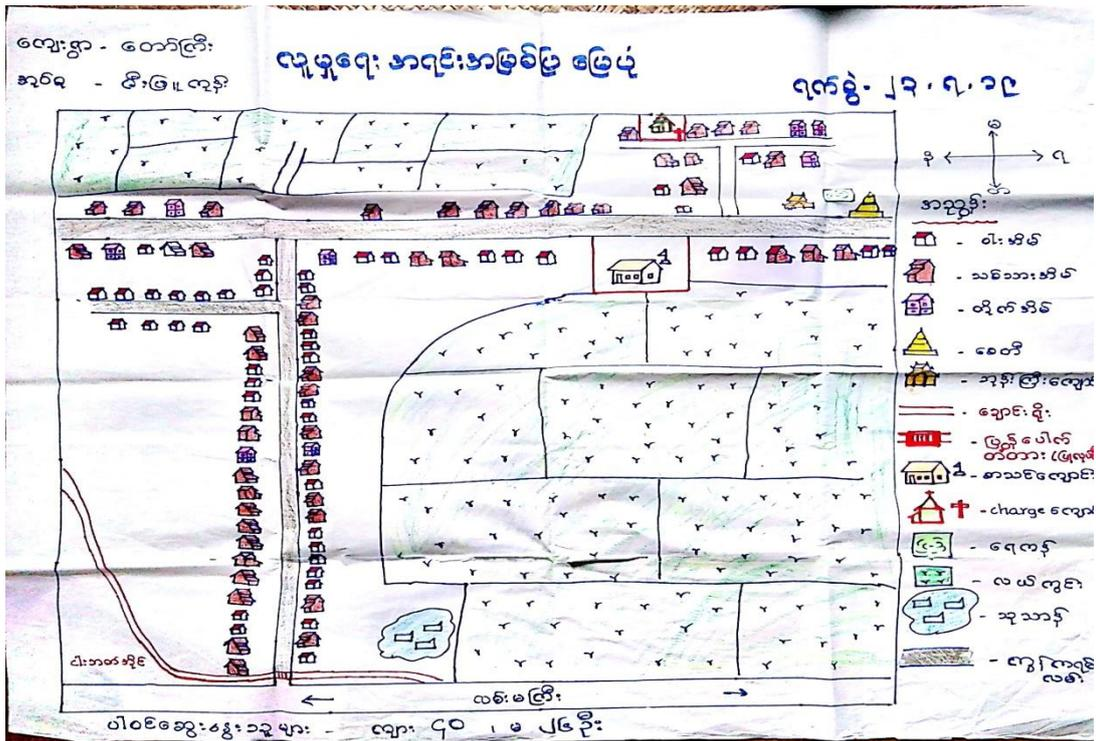 ကျေးရွာ - တော်ကြီး
အုပ်စု - မီးဖြူကုန်း
လူမှုရေး အရင်းအမြစ်ပြ မြေပုံ
ရက်စွဲ - ၂၃.၇.၁၉
မ
န
ရ
တ
အညွှန်း
- ဝါးအိမ်
- သစ်သားအိမ်
- တိုက်အိမ်
- စေတီ
- ဘုန်းကြီးကျောင်
- ချောင်းရိုး
တံတား
- စာသင်ကျောင်း
- charge ကျော
- ရေကန်
- လယ်ကွင်း
- သုသာန်
လမ်း
လမ်းမကြီး
ပါဝင်ဆွေးနွေးသူများ - ကျား ၄၀ ၊ မ ၂၆ ဦး